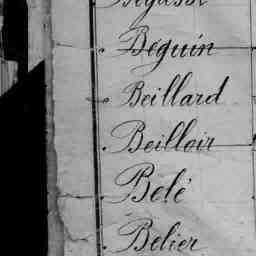 Béguin
Beillard
Beilloir
Belé
Belier